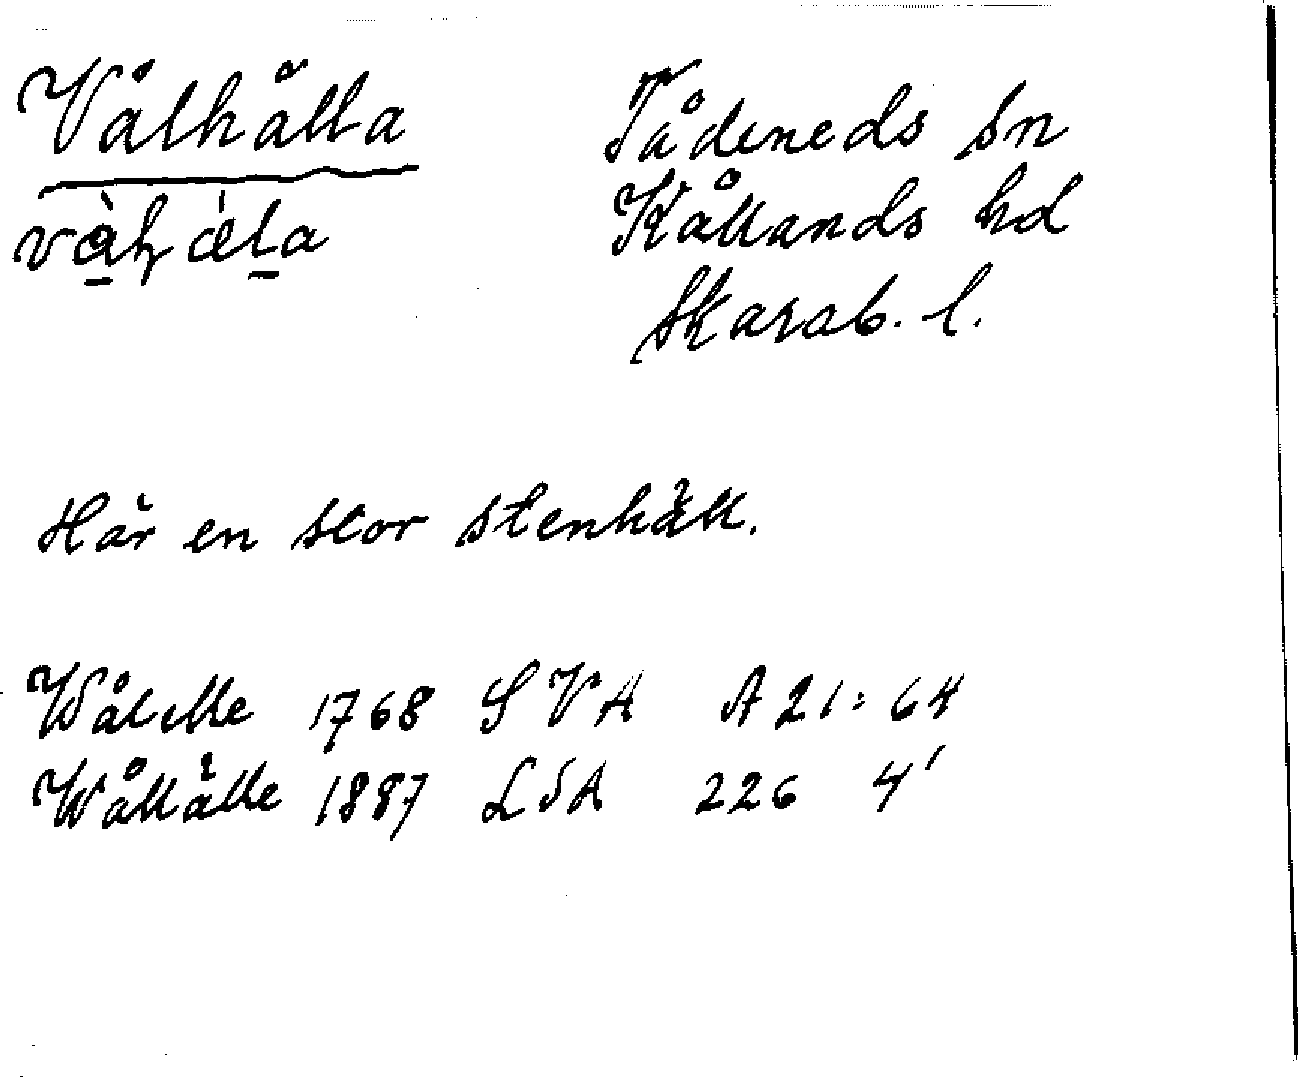 Vålhälla Tådeneds sn
Kållands hd
Skarab. l.
Här en stor stenhäll.
Wålelle 1768 SVA A 21: 64
Wållälle 1887 LSA 226 4'